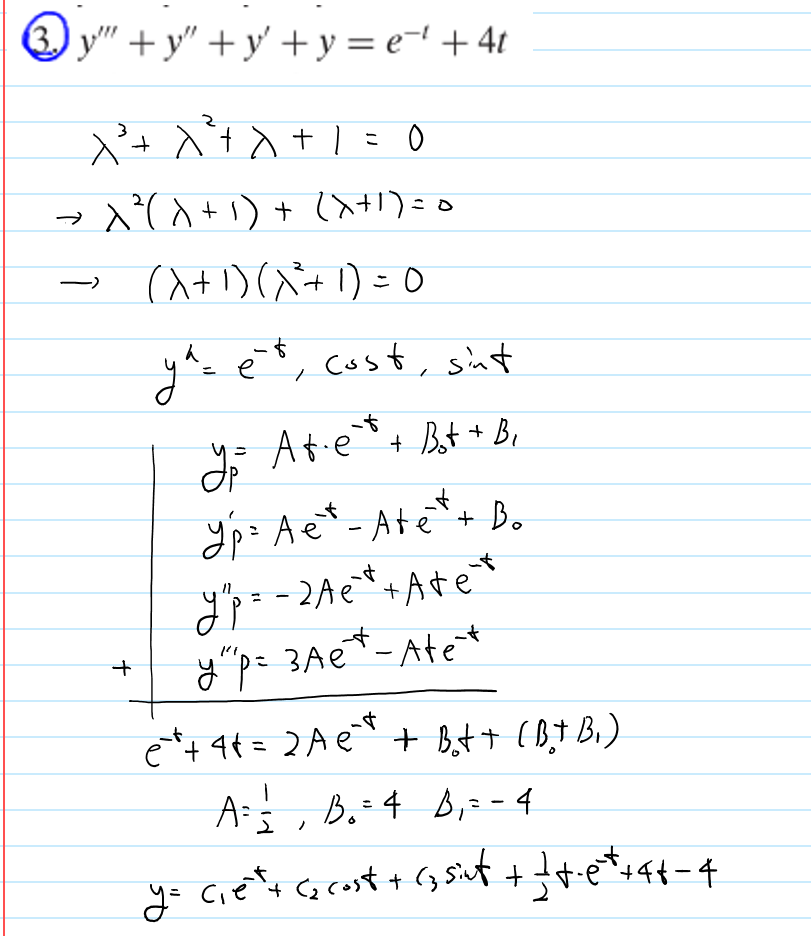 3. y''' + y'' + y' + y = e⁻ᵗ + 4t
λ³ + λ² + λ + 1 = 0
→ λ²(λ+1) + (λ+1) = 0
→ (λ+1)(λ²+1) = 0
yʰ = e⁻ᵗ, cost, sint
yₚ = At·e⁻ᵗ + B₀t + B₁
y'ₚ = Ae⁻ᵗ - Ate⁻ᵗ + B₀
y''ₚ = -2Ae⁻ᵗ + Ate⁻ᵗ
+ y'''ₚ = 3Ae⁻ᵗ - Ate⁻ᵗ
e⁻ᵗ + 4t = 2Ae⁻ᵗ + B₀t + (B₀ + B₁)
A = 1/2, B₀ = 4 B₁ = -4
y = c₁e⁻ᵗ + c₂cost + c₃sint + 1/2 t·e⁻ᵗ + 4t - 4